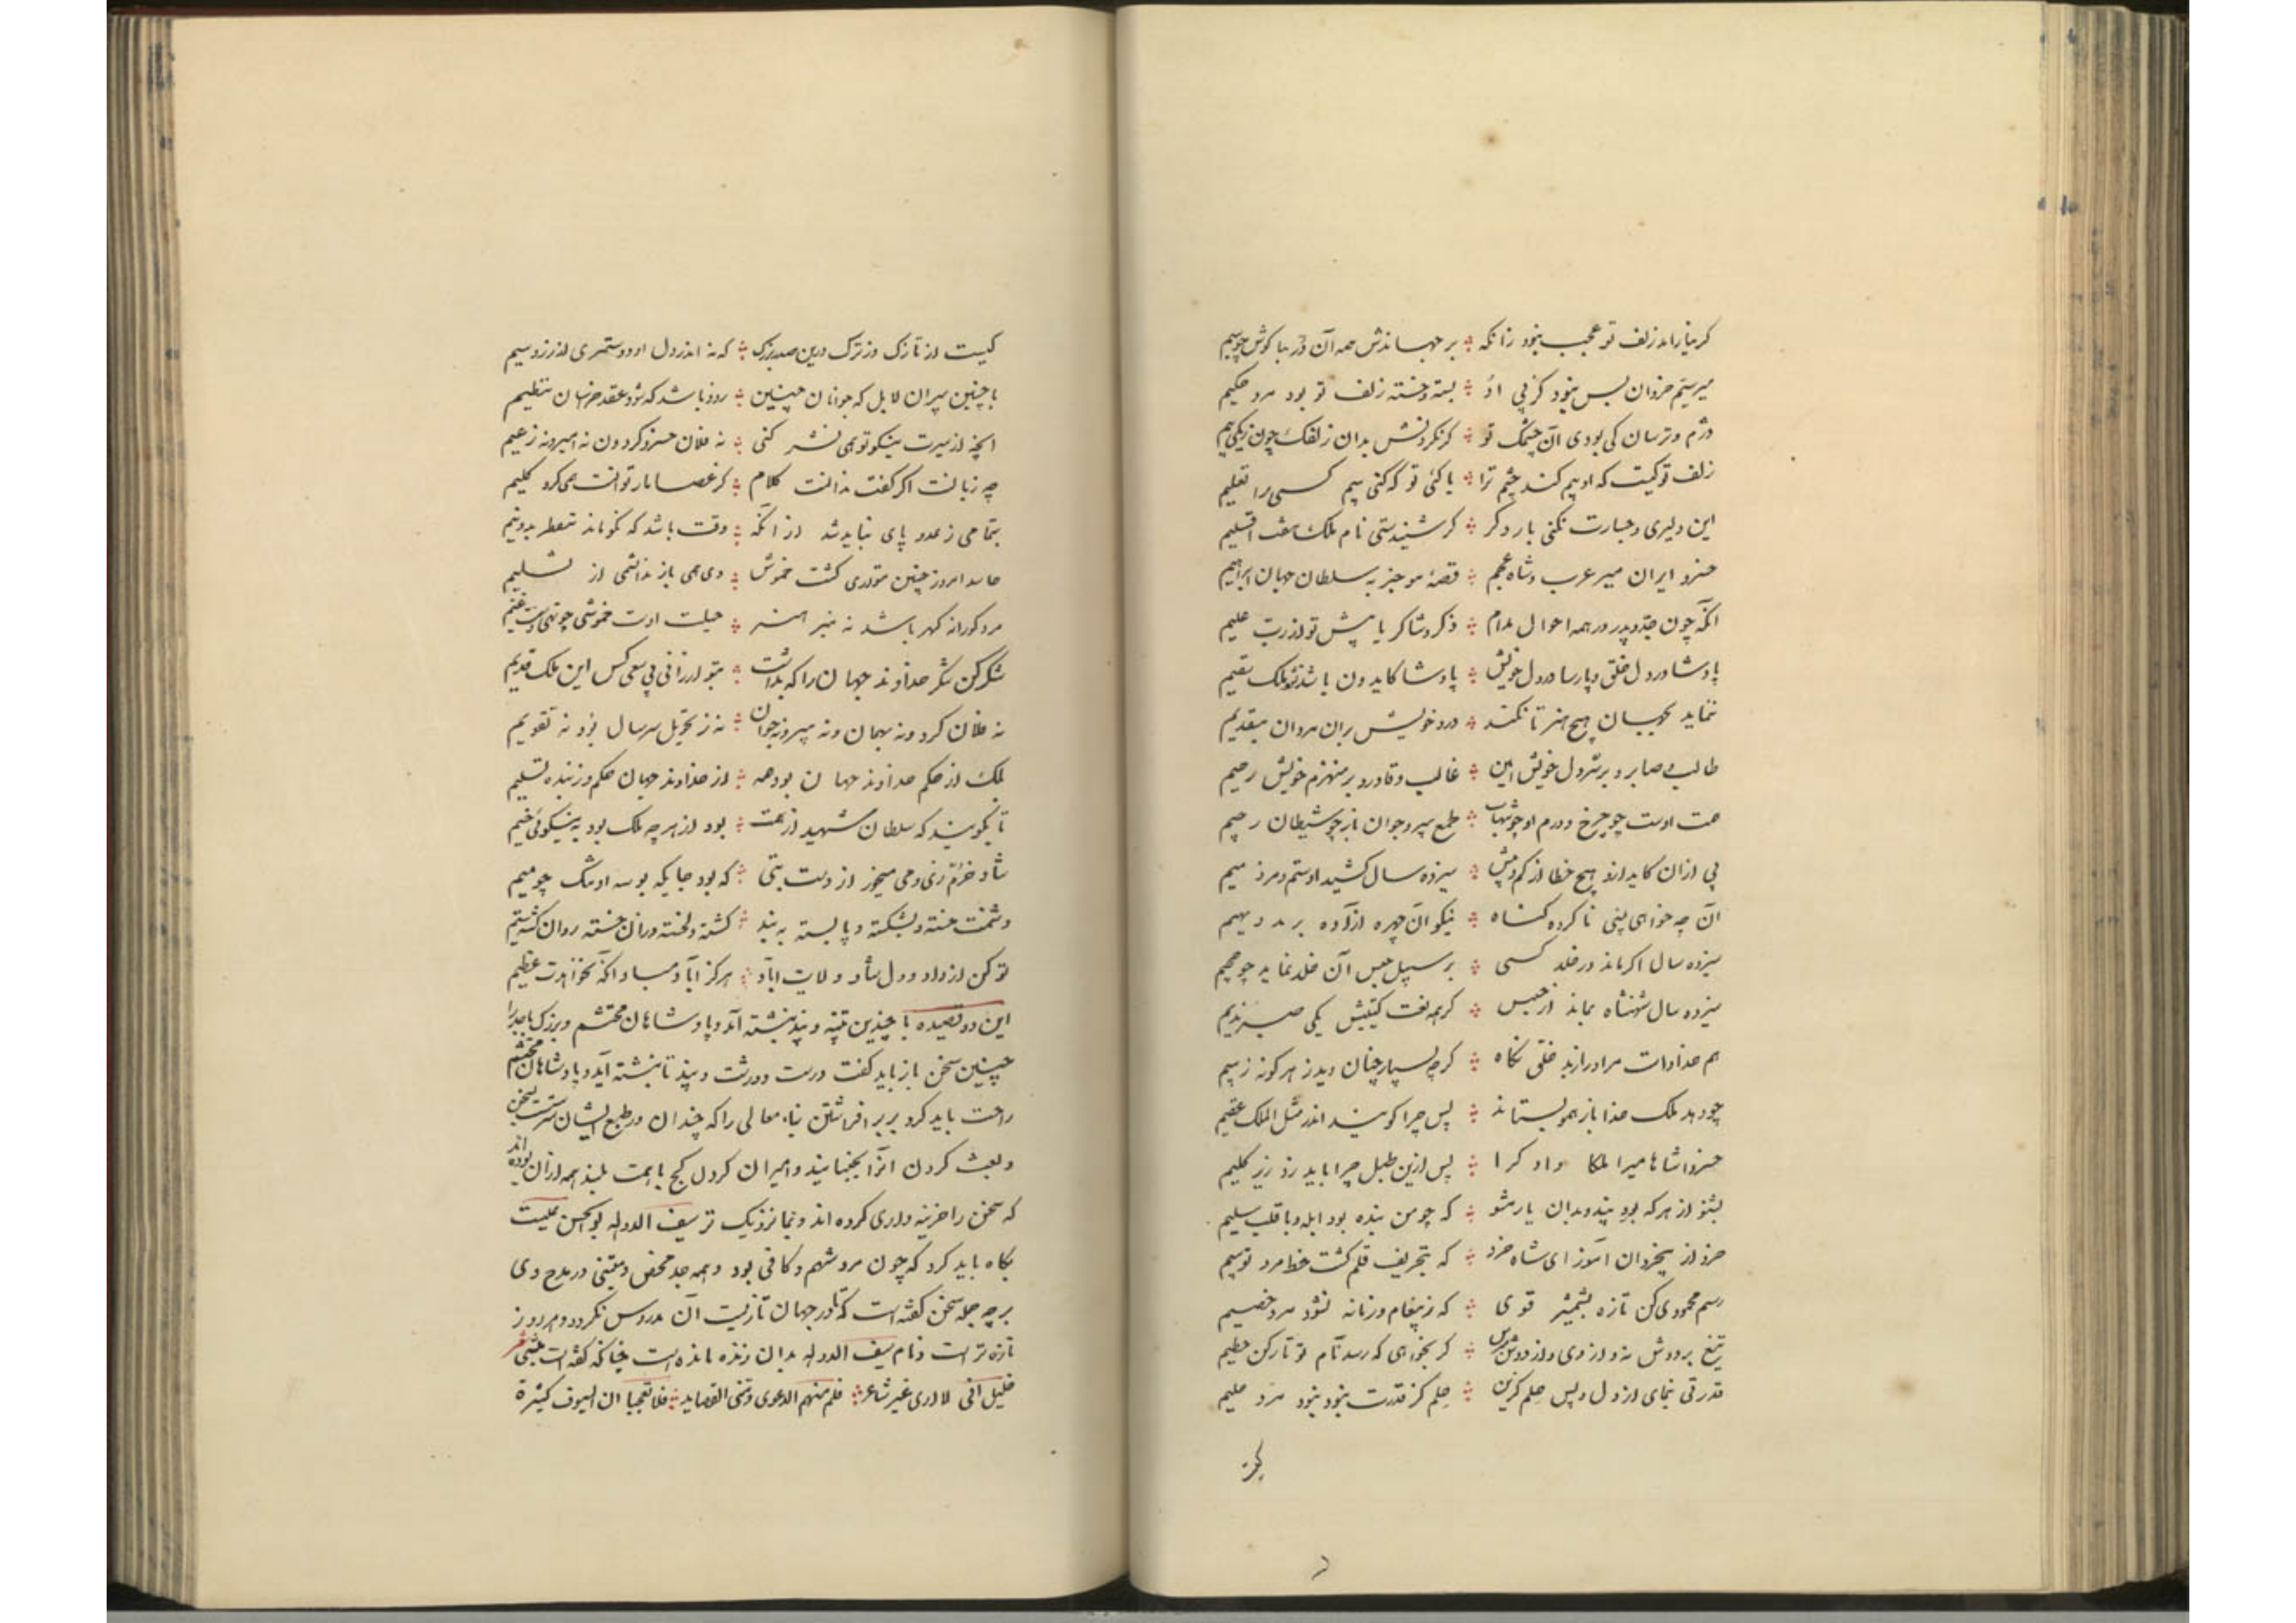 گر نیارامد زلف تو عجب نبود زانکه ؞ بر جهاندش همه آن در بناگوش چو سیم
میر ستم خردان بس نبود کز پی او ؞ بسته و خسته زلف تو بود مرد حکیم
دژم و ترسان کی بودی آن چشمک تو ؞ گر نکردیش بدان زلفک چون زنگی بیم
زلف تو کیست که او بیم کند چشم ترا ؞ یا کئی تو که کنی بیم کسی را تعلیم
این دلیری و جسارت نکنی بار دگر ؞ گر شنیدستی نام ملک هفت اقلیم
خسرو ایران میر عرب و شاه عجم ؞ قصهٔ موجز به سلطان جهان ابراهیم
آنکه چون جد و پدر در همه احوال مدام ؞ ذکر و شاکر یابیش تو از رب علیم
پادشا در دل خلق و پارسا در دل خویش ؞ پادشا کایدون باشد نشود ملک سقیم
ننماید بحسبان هیچ هنر تا نکند ؞ در دخویش بران مردان تقدیم
طالب و صابر و بر سر دل خویش امین ؞ غالب و قادر و بر منهزم خویش رحیم
همت اوست چو چرخ و درم او چو شهاب ؞ طمع پیر و جوان باز چو شیطان رجیم
پی ازان کاید ازو هیچ خطا از کم و بیش ؞ سیزده سال کشید او ستم دمر ذمیم
آن چه خواهی بنی ناکرده گناه ؞ نیکو آن چهره ازآده برید دیهیم
سیزده سال اگر ماند در خلد کسی ؞ بر سبیل حبس آن خلد نماید چو جحیم
سیزده سال شهنشاه بماند از حبس ؞ کز همه نعت گیتیش یکی صبر ندیم
هم خدا داشت مر او را از بد خلق نگاه ؞ گرچه بسیار چنان دید ز هر گونه ز بیم
چو دهد ملک خدا باز همو بستاند ؞ پس چرا گویند اندر مثل الملک عقیم
خسروا شاها میرا ملکا دادگرا ؞ پس ازین طبل چرا باید زد زیر گلیم
بشنو از هر که بود پند و بدان باز مشو ؞ که چو من بنده بود ابله و با قلب سلیم
خرد از بیخردان آموز ای شاه خرد ؞ که بتحریف قلم گشت خط مرد قویم
رسم محمودی کن تازه بشمشیر قوی ؞ که ز پیغام و ز نامه نشود مرد خصیم
تیغ بر دوش نه و از دی و از دوش مپرس ؞ گر بخواهی که رسد نام تو تا رکن حطیم
قدرتی بنمای از دل و پس حلم گزین ؞ حلم کز قدرت نبود نبود مرد حلیم
کیست
کیست از تازک و از ترک درین صدر بزرگ ؞ که نه اندر دل او دوستتری از زر و سیم
با چنین پیران لابل که جوانان چنین ؞ زود باشد که شود عقد خراسان تنظیم
آنچه از سیرت نیکو تو همی نشر کنی ؞ نه فلان خسرو کرد و نه امیر و نه زعیم
چه زیانست اگر گفت ندانست کلام ؞ کز عصا مار توانست همی کرد کلیم
بتمامی ز عدو پای نباید شد از آنکه ؞ وقت باشد که نکو ماند نقطه بدو نیم
حاسد امروز چنین متواری گشت خموش ؞ دی همی باز ندانستمی از تسلیم
مرد کورانه گهر باشد نه نیز هنر ؞ حیلت اوست خموشی چو تهی دست غنیم
شکر کن شکر خداوند جهان را که بداشت ؞ بتو ارزانی بی سعی کس این ملک قدیم
نه فلان کرد و نه بهمان و نه پیر و نه جوان ؞ نه ز تحویل سر سال بود نه تقویم
بلک از حکم خداوند جهان بود همه ؞ از خداوند جهان حکم و ز بنده تسلیم
تا بگویند که سلطان شهید از همت ؞ بود از هر چه ملک بود به نیکوئی خیم
شاد و خرم زی و می میخور از دست بتی ؞ که بود جایگه بوسه او تنگ چو میم
دشمنت خسته و بشکسته و پا بسته به بند ؞ گشته دلخسته وز آن خسته روان گشته سقیم
تو کن از داد و دل شاد ولایت آباد ؞ هرگز آباد مباد آنکه نخواهدت عظیم
این دو قصیده با چندین تنبیه و پند نبشته آمد و پادشاهان محتشم و بزرگ باجد را
چنین سخن باز باید گفت درست و درشت و پند تا نبشته آید و پادشاهان محتشم
راحث باید کرد بر بر افراشتن بناء معالی را که چندان در طبع ایشان سرشتست بسخن
و بعث کردن آنرا بجنبانند و امیران گردن کج با همت بلند همه از آن بوده اند
که سخن را خریداری کرده اند و بما نزدیک تر سیف الدوله ابوالحسن علیست
نگاه باید کرد که چون مرد شهم و کافی بود و همه جد محض متنبی در مدح وی
بر چه جمله سخن گفته است که تا در جهان تازیست آن مدروس نگردد و هر روز
تازه تر است و نام سیف الدوله بدان زنده مانده است چنانکه گفته است متنبی شعر
خلیلی انی لا اری غیر شاعر ؞ فلم منهم الدعوی و منی القصاید ؞ فلا تعجبا ان السیوف کثیرة